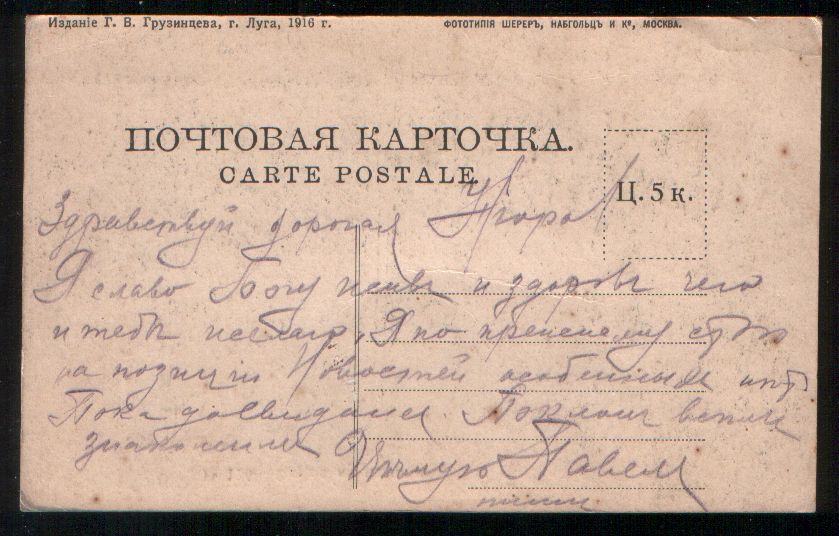 Изданіе Г. В. Грузинцева, г. Луга, 1916 г.
ФОТОТИПІЯ ШЕРЕРЪ, НАБГОЛЬЦЪ И Кº, МОСКВА.
ПОЧТОВАЯ КАРТОЧКА.
CARTE POSTALE
Ц. 5 к.
Здравствуй дорогая
Я славо Богу живъ и здоровъ чего
и тебѣ желаю, Я по прежнему стою
на позиціи Новостей особенныхъ нѣт
Пока досвиданія. Поклонъ всѣмъ
знакомымъ Цѣлую Павел
пиши